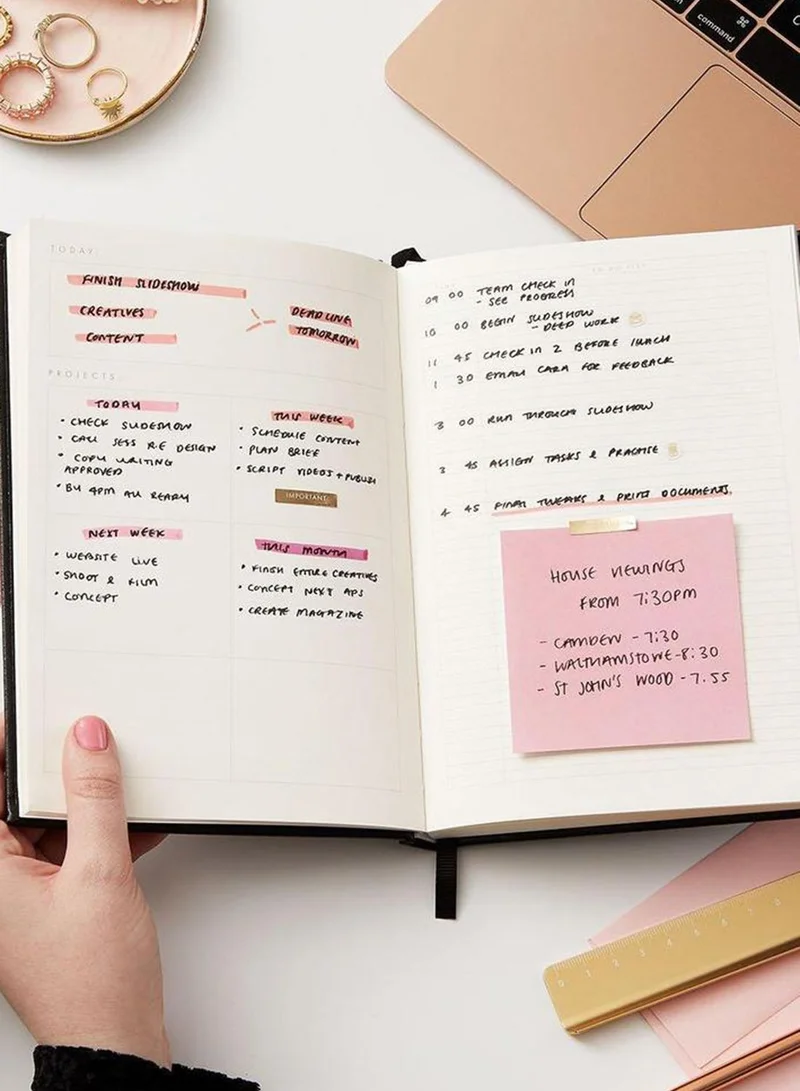 command
⌘
TODAY
FINISH SLIDESHOW
CREATIVES
CONTENT
DEADLINE
TOMORROW
PROJECTS
TODAY
• CHECK SLIDESHOW
• CALL SESS RE DESIGN
• COPY WRITING
APPROVED
• BY 4PM ALL READY
THIS WEEK
• SCHEDULE CONTENT
• PLAN BRIEF
• SCRIPT VIDEOS + PUBLISH
IMPORTANT
NEXT WEEK
• WEBSITE LIVE
• SHOOT & FILM
• CONCEPT
THIS MONTH
• FINISH ENTIRE CREATIVES
• CONCEPT NEXT APS
• CREATE MAGAZINE
TO DO LIST
09 00 TEAM CHECK IN
- SEE PROGRESS
10 00 BEGIN SLIDESHOW
- DEEP WORK
11 45 CHECK IN 2 BEFORE LUNCH
1 30 EMAIL CARA FOR FEEDBACK
3 00 RUN THROUGH SLIDESHOW
3 45 ASSIGN TASKS & PRACTISE
4 45 FINAL TWEAKS & PRINT DOCUMENTS.
HOUSE VIEWINGS
FROM 7:30PM
- CAMDEN - 7:30
- WALTHAMSTOWE - 8:30
- ST JOHN'S WOOD - 7.55
0 1 2 3 4 5 6 7 8